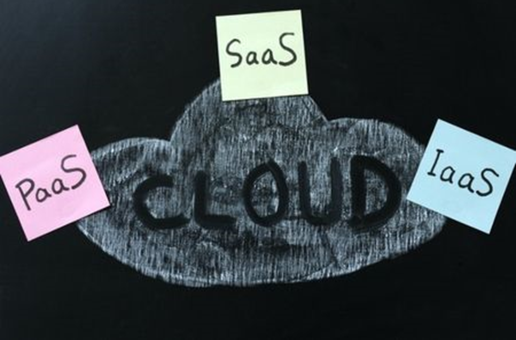 SaaS
PaaS
CLOUD
IaaS